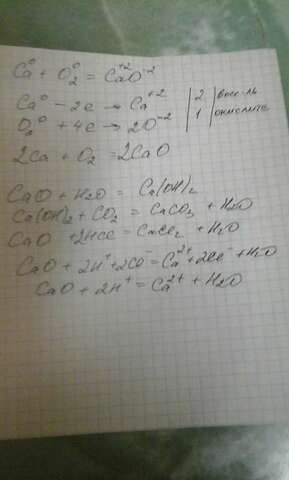 Ca⁰ + O₂⁰ = Ca⁺²O⁻²
Ca⁰ - 2e → Ca⁺² | 2 | восс-ль
O₂⁰ + 4e → 2O⁻² | 1 | окислите
2Ca + O₂ = 2CaO
CaO + H₂O = Ca(OH)₂
Ca(OH)₂ + CO₂ = CaCO₃ + H₂O
CaO + 2HCl = CaCl₂ + H₂O
CaO + 2H⁺ + 2Cl = Ca²⁺ + 2Cl⁻ + H₂O
CaO + 2H⁺ = Ca²⁺ + H₂O